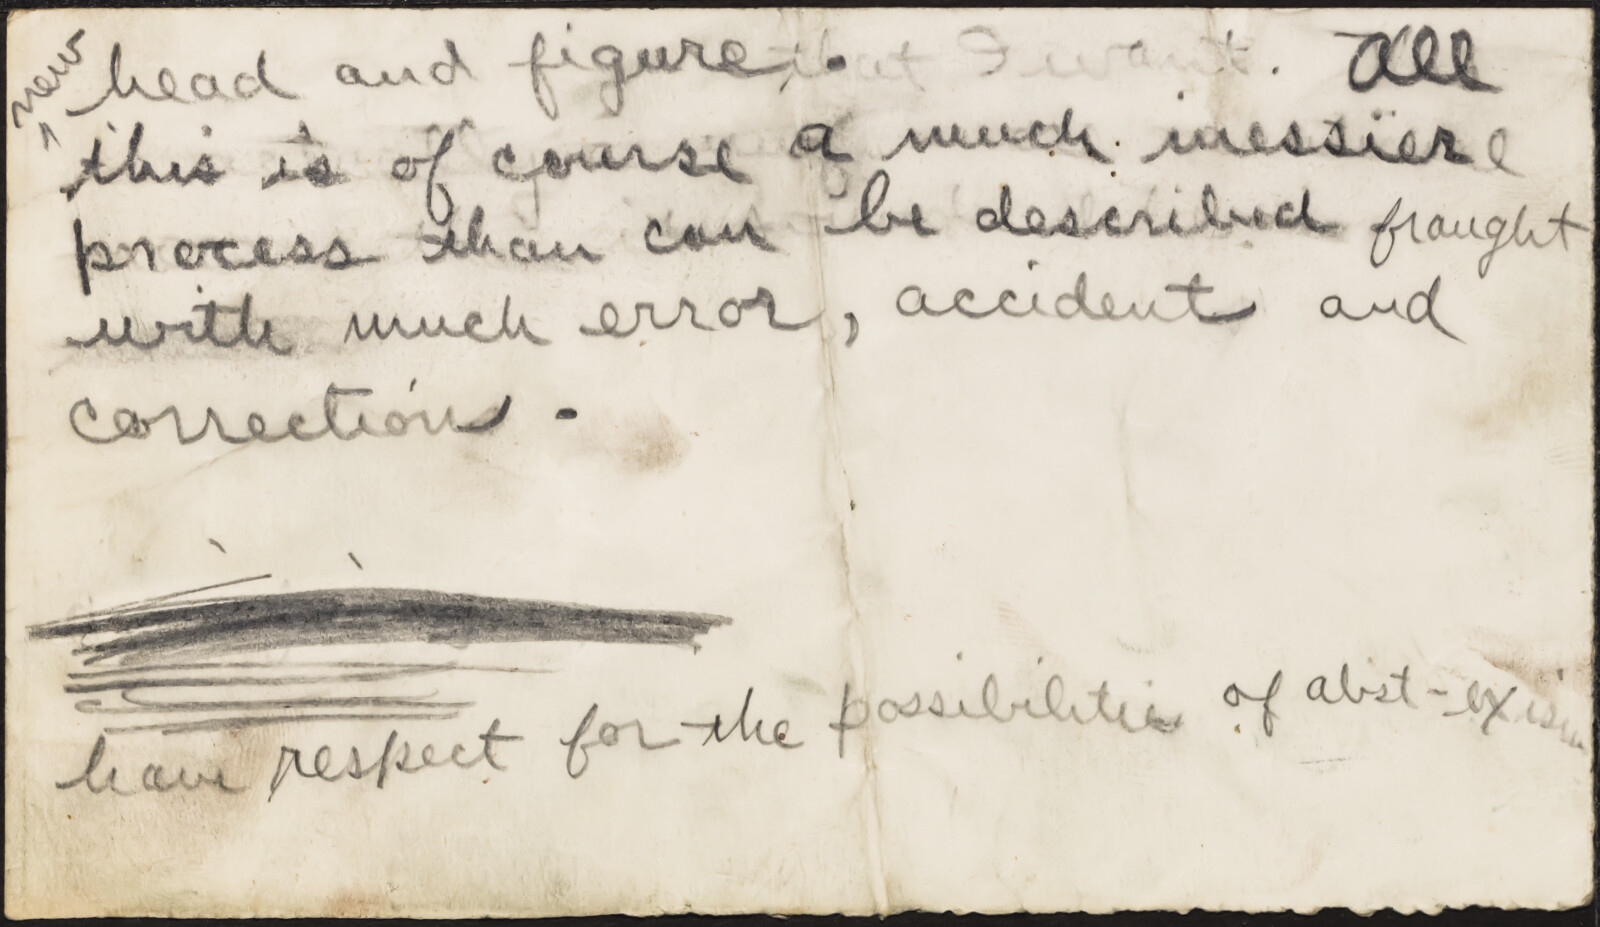 new head and figure. that I want. All
this is of course a much messier
process than can be described fraught
with much error, accident and
correction.
have respect for the possibilities of abst-exism